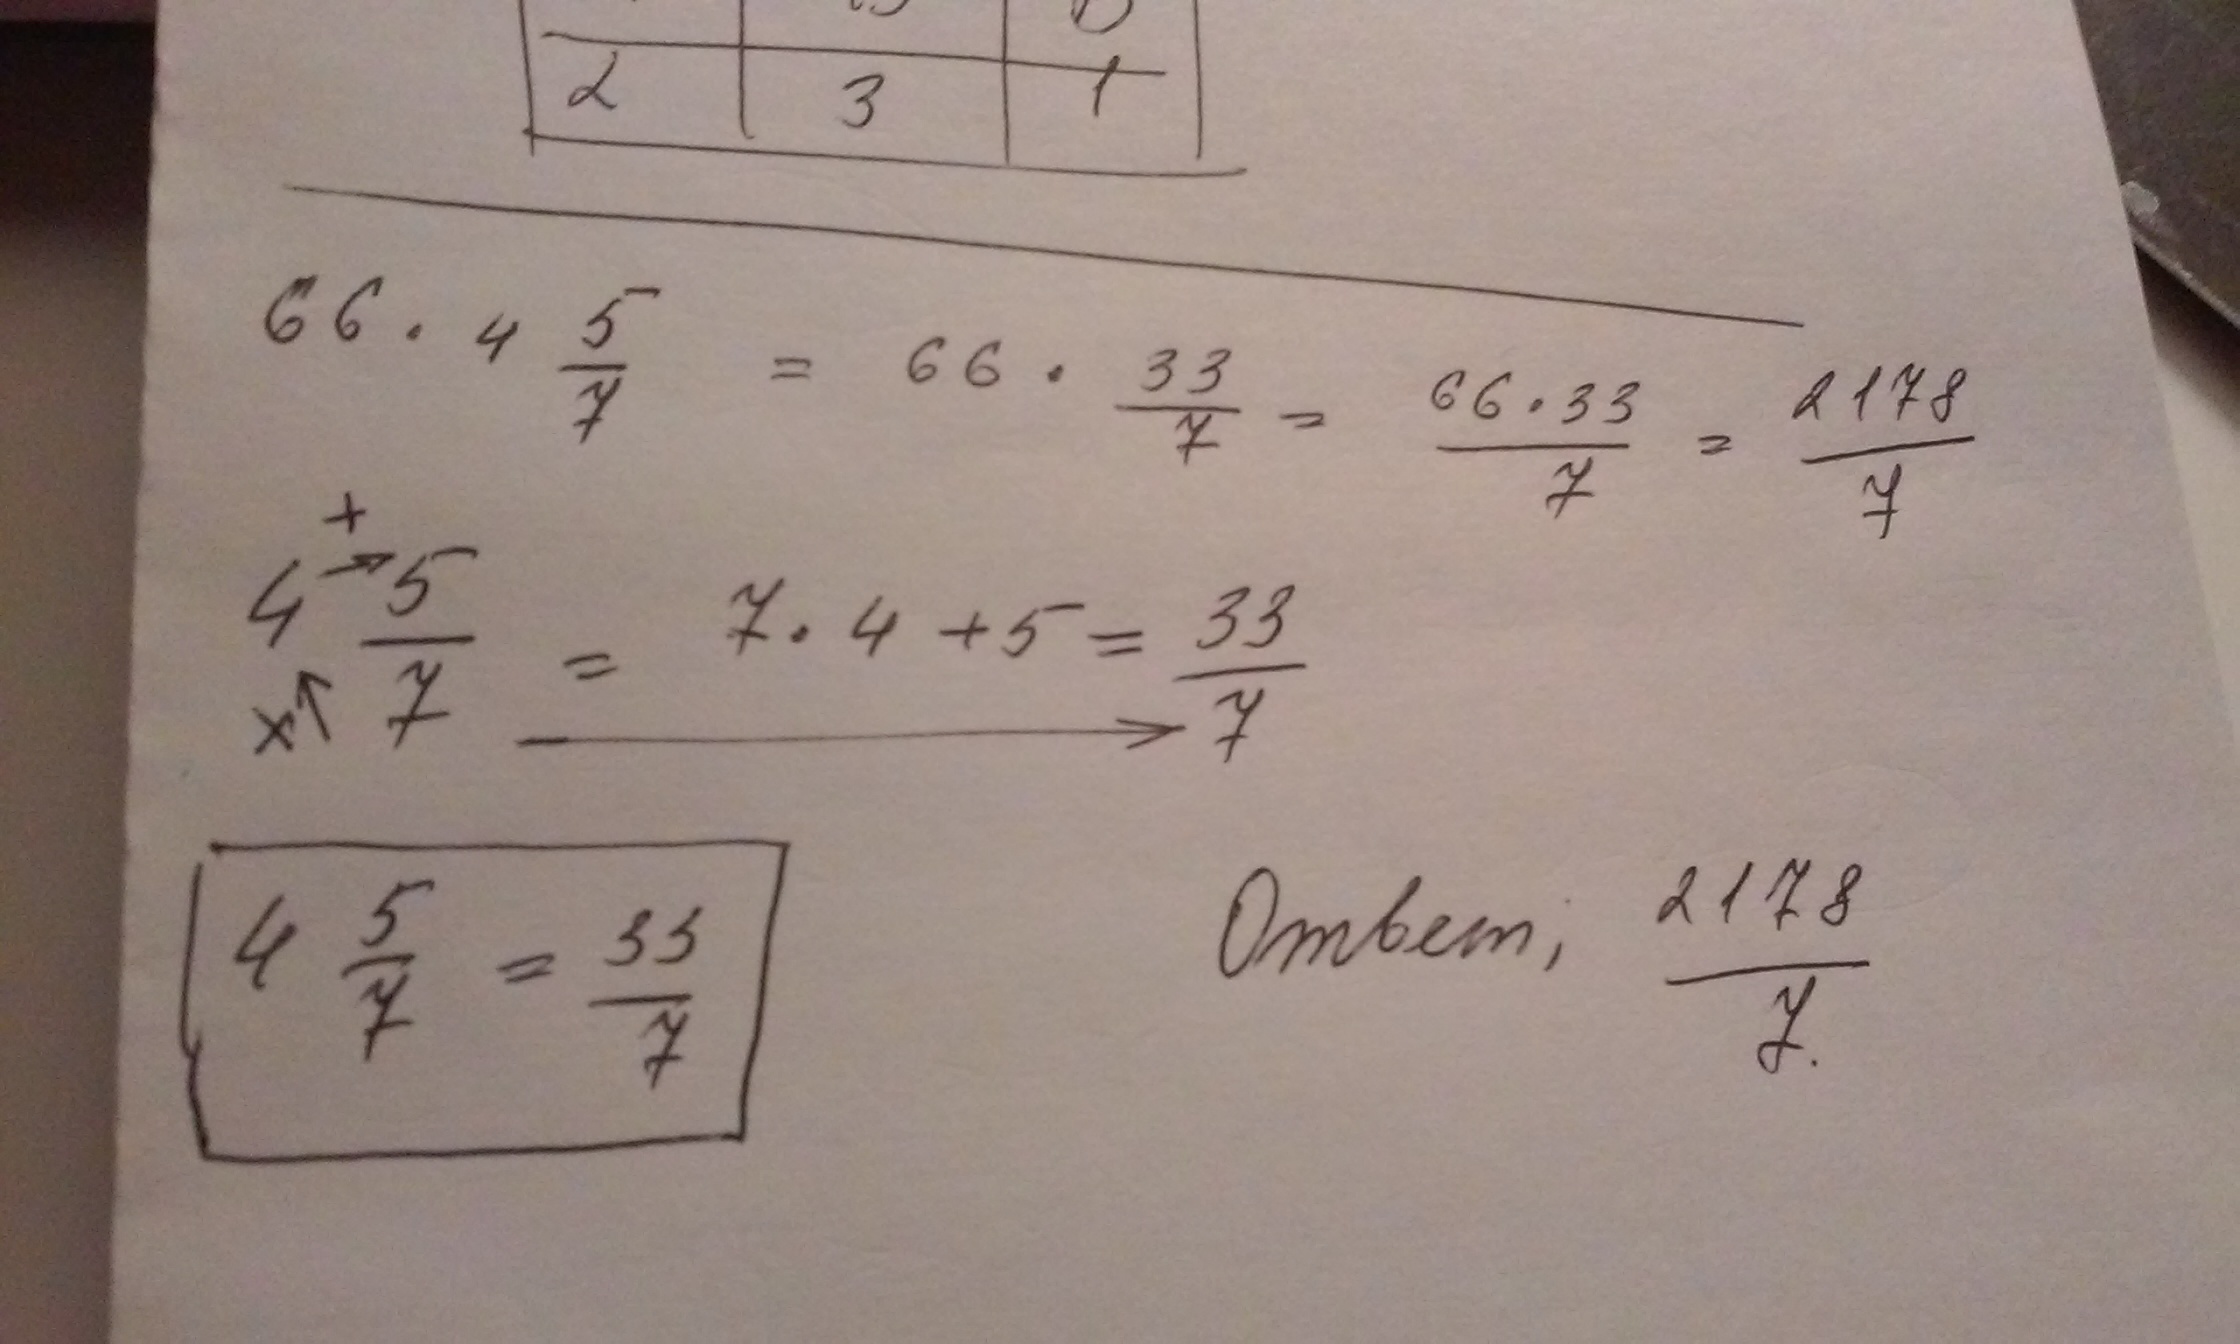 2 3 1
66 · 4 5/7 = 66 · 33/7 = 66·33/7 = 2178/7
+
4 → 5/7 = 7·4+5 = 33/7
x↑ →
4 5/7 = 33/7
Ответ; 2178/7.